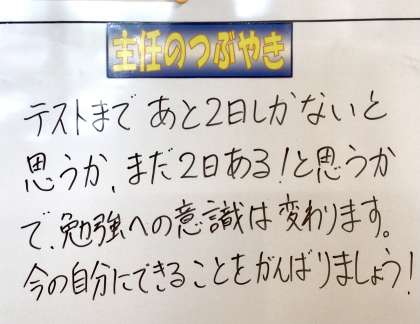 主任のつぶやき
テストまで あと2日しかないと
思うか、まだ2日ある!と思うか
で、勉強への意識は変わります。
今の自分にできることをがんばりましょう!